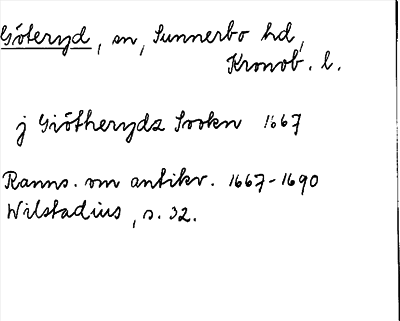 Göteryd, sn, Sunnerbo hd,
Kronob. l.
j Giötherydz Sockn 1667
Ranns. om antikv. 1667-1690
Wilstadius, s. 32.